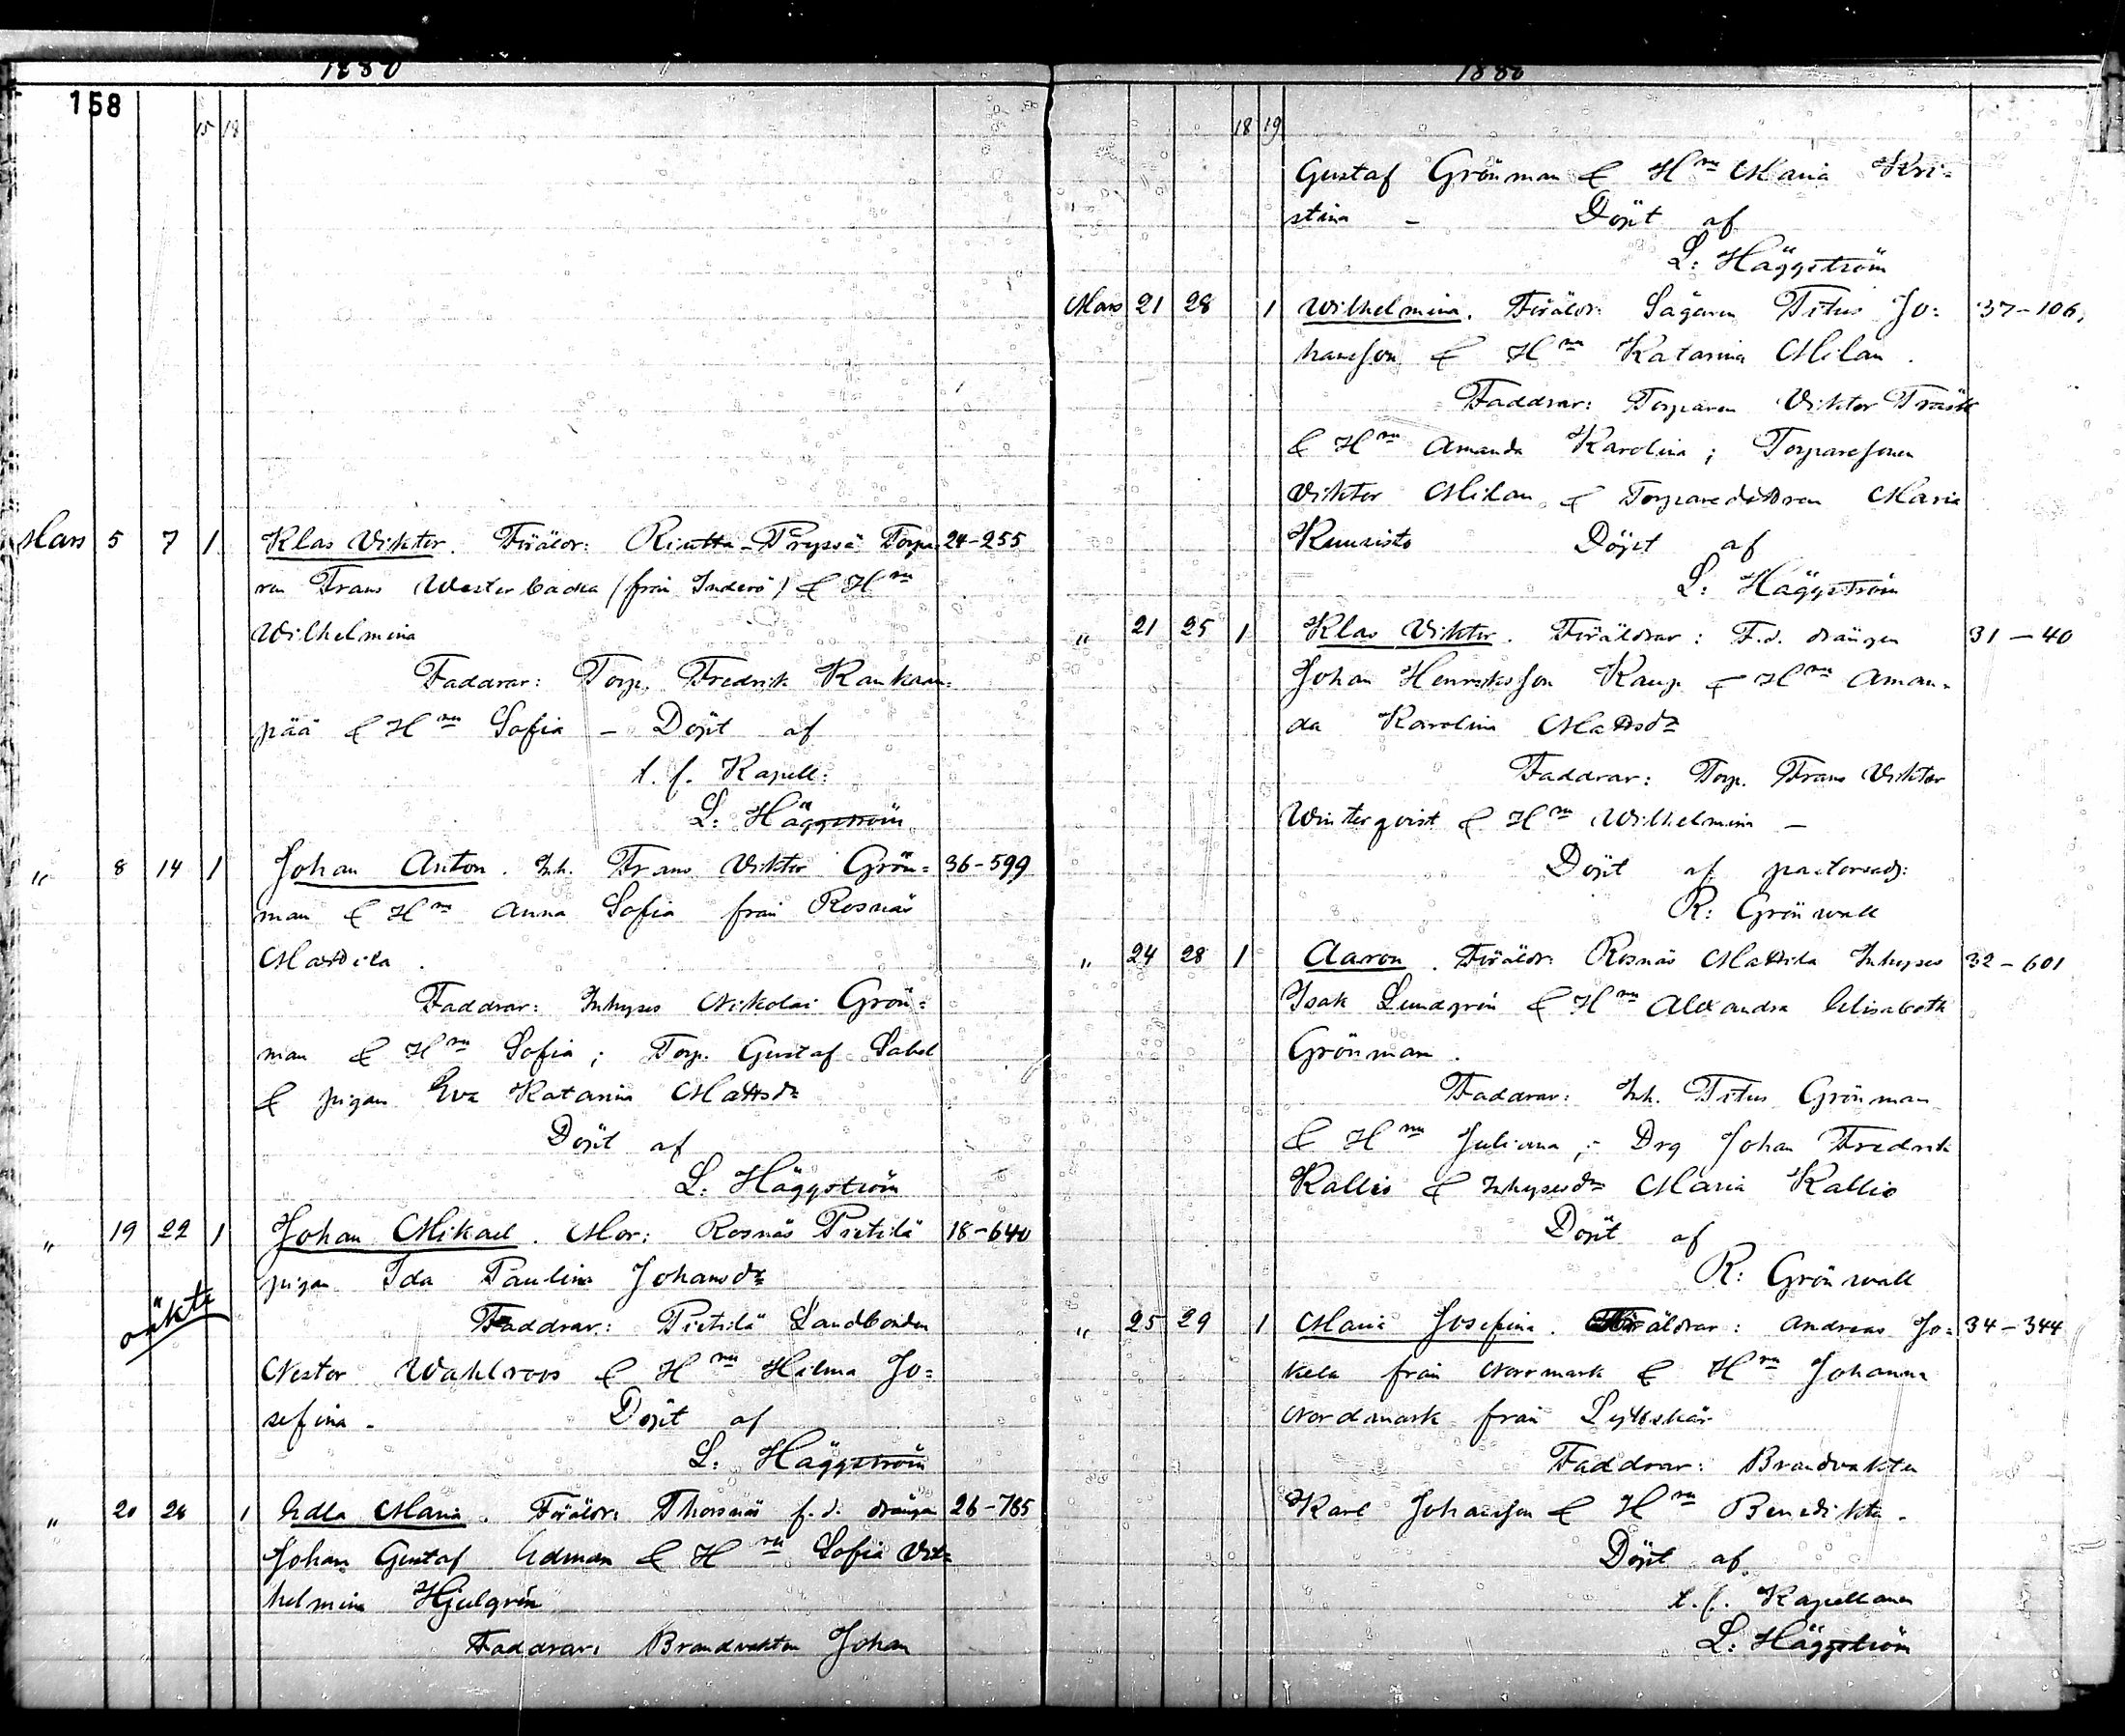 1880
158
15 18
Mars 5 7 1 Klas Viktor. Föräldr: Riutta-Preyssä Torpa- 24-255
ren Frans Westerbacka (från Inderö) & H^ru
Wilhelmina
Faddrar: Torp. Fredrik Kankaan-
pää & H^ru Sofia – Döpt af
t. f. Kapell:
L: Häggström
" 8 14 1 Johan Anton. Inh. Frans Viktor Grön= 36-599
man & H^ru Anna Sofia från Rosnäs
Mattila.
Faddrar: Inhyses Nikolai Grön=
man & H^ru Sofia; Torp. Gustaf Sabel
& pigan Eva Katarina Mattsdr
Döpt af
L: Häggström
" 19 22 1 Johan Mikael. Mor: Rosnäs Pietilä 18-640
pigan Ida Paulina Johansdr
oäkta
Faddrar: Pietilä Landbonden
Nestor Wahlroos & H^ru Hilma Jo=
sefina – Döpt af
L: Häggström
" 20 24 1 Edla Maria. Föräldr: Thorsnäs f.d. drängen 26-785
Johan Gustaf Edman & H^ru Sofia Vil=
helmina Hjulgrén
Faddrar: Brandvakten Johan
1880
18 19
Gustaf Grönman & H^ru Maria Kri=
stina – Döpt af
L: Häggström
Mars 21 28 1 Wilhelmina. Föräldr: Sågaren Titus Jo= 37-106
hansson & H^ru Katarina Milan.
Faddrar: Torparen Viktor Träsk
& H^ru Amanda Karolina; Torparesonen
Viktor Milan & Torparedottren Maria
Kuusisto Döpt af
L: Häggström
" 21 25 1 Klas Viktor. Föräldrar: F.d. drängen 31-40
Johan Henriksson Kaup & H^ru Aman-
da Karolina Mattsdr
Faddrar: Torp. Frans Viktor
Winterqvist & H^ru Wilhelmina –
Döpt af pastorsadj:
R: Grönwall
" 24 28 1 Aaron. Föräldr: Rosnäs Mattila Inhyses 32-601
Isak Lundgrén & H^ru Alexandra Elisabeth
Grönman.
Faddrar: Inh. Titus Grönman
& H^ru Juliana; Drg Johan Fredrik
Kallio & Inhysesdr Maria Kallio
Döpt af
R: Grönwall
" 25 29 1 Maria Josefina. Föräldrar: Andreas Jo= 34-344
kela från Norrmark & H^ru Johanna
Nordmark från Lyttskär
Faddrar: Brandvakten
Karl Johansson & H^ru Benedikta.
Döpt af
t. f. Kapellanen
L: Häggström